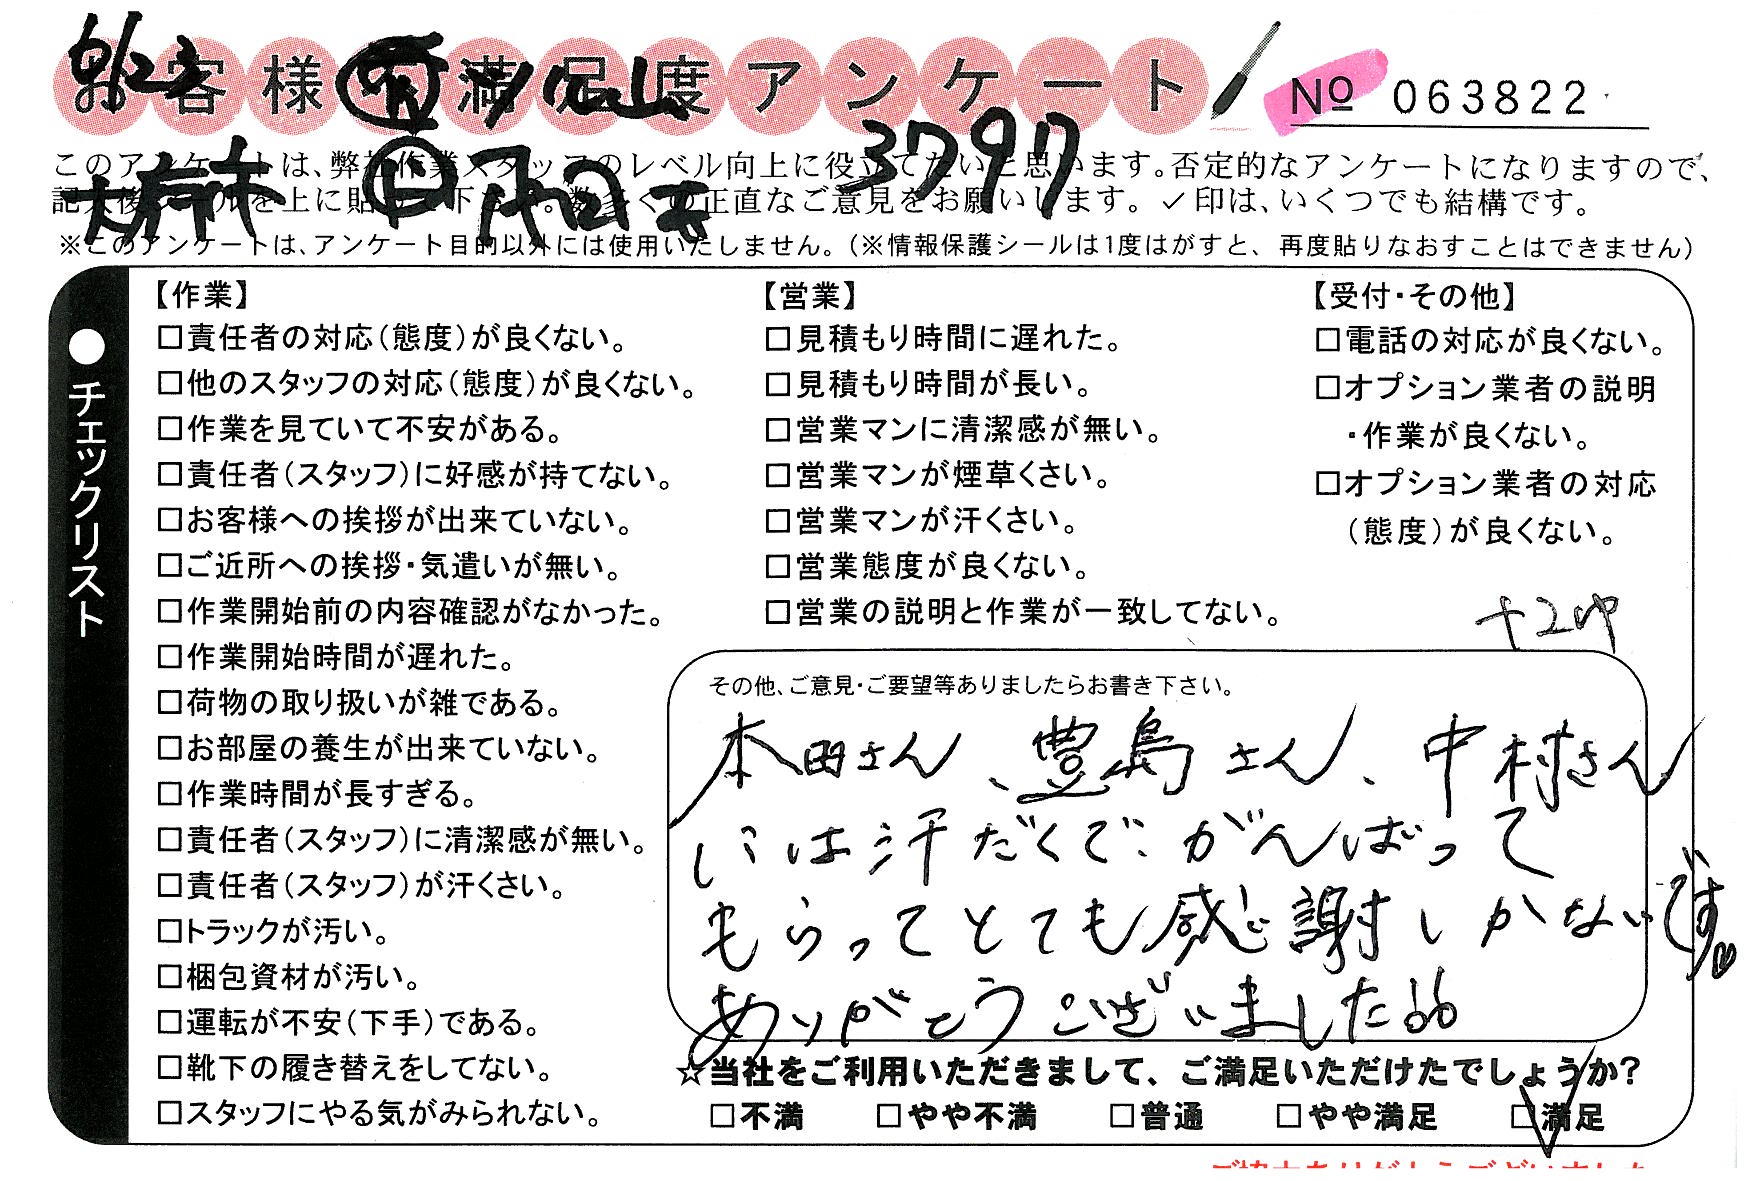 9/23
お客様不満足度アンケート
No 063822
3797
このアンケートは、弊社作業スタッフのレベル向上に役立てたいと思います。否定的なアンケートになりますので、
記入後シールを上に貼って下さい。数多くの正直なご意見をお願いします。✓印は、いくつでも結構です。
※このアンケートは、アンケート目的以外には使用いたしません。(※情報保護シールは1度はがすと、再度貼りなおすことはできません)
●チェックリスト
【作業】
□責任者の対応(態度)が良くない。
□他のスタッフの対応(態度)が良くない。
□作業を見ていて不安がある。
□責任者(スタッフ)に好感が持てない。
□お客様への挨拶が出来ていない。
□ご近所への挨拶・気遣いが無い。
□作業開始前の内容確認がなかった。
□作業開始時間が遅れた。
□荷物の取り扱いが雑である。
□お部屋の養生が出来ていない。
□作業時間が長すぎる。
□責任者(スタッフ)に清潔感が無い。
□責任者(スタッフ)が汗くさい。
□トラックが汚い。
□梱包資材が汚い。
□運転が不安(下手)である。
□靴下の履き替えをしてない。
□スタッフにやる気がみられない。
【営業】
□見積もり時間に遅れた。
□見積もり時間が長い。
□営業マンに清潔感が無い。
□営業マンが煙草くさい。
□営業マンが汗くさい。
□営業態度が良くない。
□営業の説明と作業が一致してない。
【受付・その他】
□電話の対応が良くない。
□オプション業者の説明
・作業が良くない。
□オプション業者の対応
(態度)が良くない。
その他、ご意見・ご要望等ありましたらお書き下さい。
本田さん、豊島さん、中村さん
には汗だくで、がんばって
もらってとても感謝しかないです。
ありがとうございました
☆当社をご利用いただきまして、ご満足いただけたでしょうか?
□不満 □やや不満 □普通 □やや満足 □満足
ご協力ありがとうございました